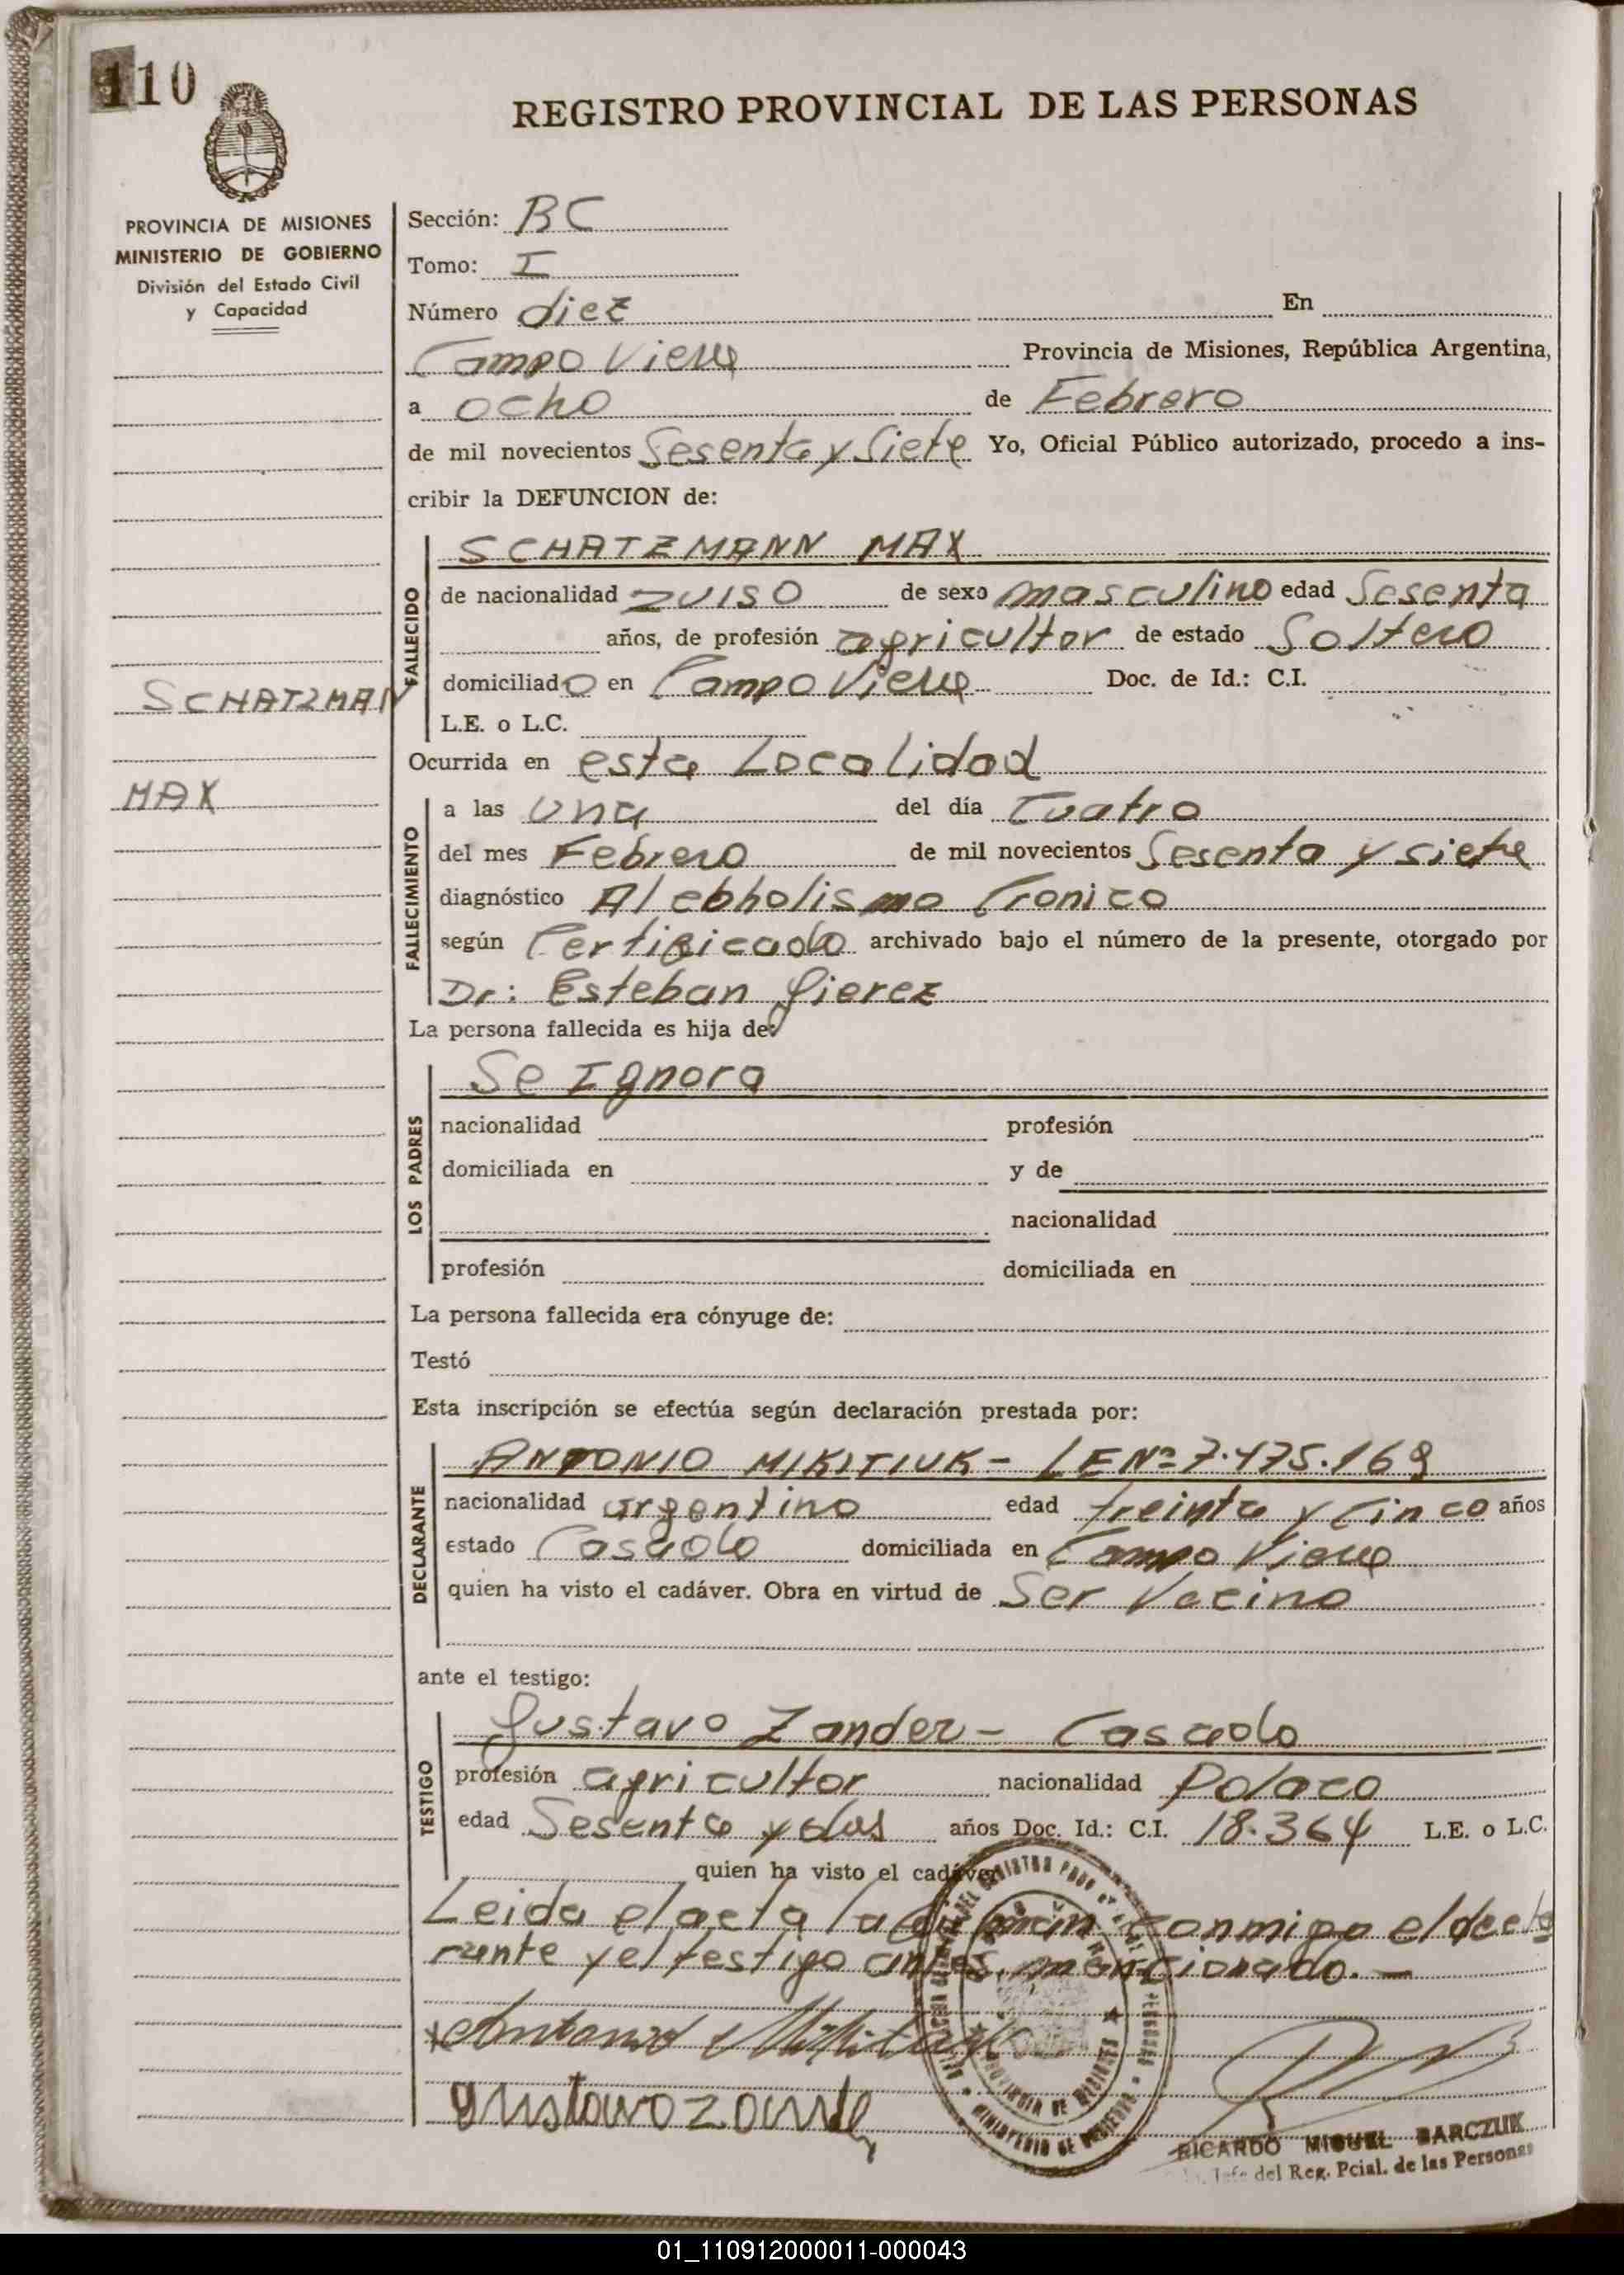 110
REGISTRO PROVINCIAL DE LAS PERSONAS
PROVINCIA DE MISIONES
MINISTERIO DE GOBIERNO
División del Estado Civil
y Capacidad
Sección: BC
Tomo: I
Número diez En
Campo Viera Provincia de Misiones, República Argentina,
a ocho de Febrero
de mil novecientos Sesenta y Siete Yo, Oficial Público autorizado, procedo a ins-
cribir la DEFUNCION de:
FALLECIDO
SCHATZMANN MAX
de nacionalidad zuiso de sexo masculino edad Sesenta
años, de profesión agricultor de estado Soltero
domiciliado en Campo Viera Doc. de Id.: C.I.
L.E. o L.C.
SCHATZMAN
MAX
Ocurrida en esta Localidad
FALLECIMIENTO
a las una del día Cuatro
del mes Febrero de mil novecientos Sesenta y siete
diagnóstico Alcohholismo Cronico
según Certificado archivado bajo el número de la presente, otorgado por
Dr: Esteban Gierez
La persona fallecida es hija de:
LOS PADRES
Se Ignora
nacionalidad profesión
domiciliada en y de
nacionalidad
profesión domiciliada en
La persona fallecida era cónyuge de:
Testó
Esta inscripción se efectúa según declaración prestada por:
DECLARANTE
ANTONIO MIKITIUK - LE Nº 7.475.169
nacionalidad argentino edad treinta y Cinco años
estado Casado domiciliada en Campo Viera
quien ha visto el cadáver. Obra en virtud de Ser Vecino
ante el testigo:
TESTIGO
Gustavo Zander - Casado
profesión agricultor nacionalidad Polaco
edad Sesenta y dos años Doc. Id.: C.I. 18.364 L.E. o L.C.
quien ha visto el cadáver
Leida el acta la firman conmigo el decla
rante y el testigo antes mencionado. -
Antonio Mikitiuk
gustavo zander
RICARDO MIGUEL BARCZUK
Jefe del Reg. Pcial. de las Personas
PROVINCIA DE MISIONES
MINISTERIO DE GOBIERNO
01_110912000011-000043